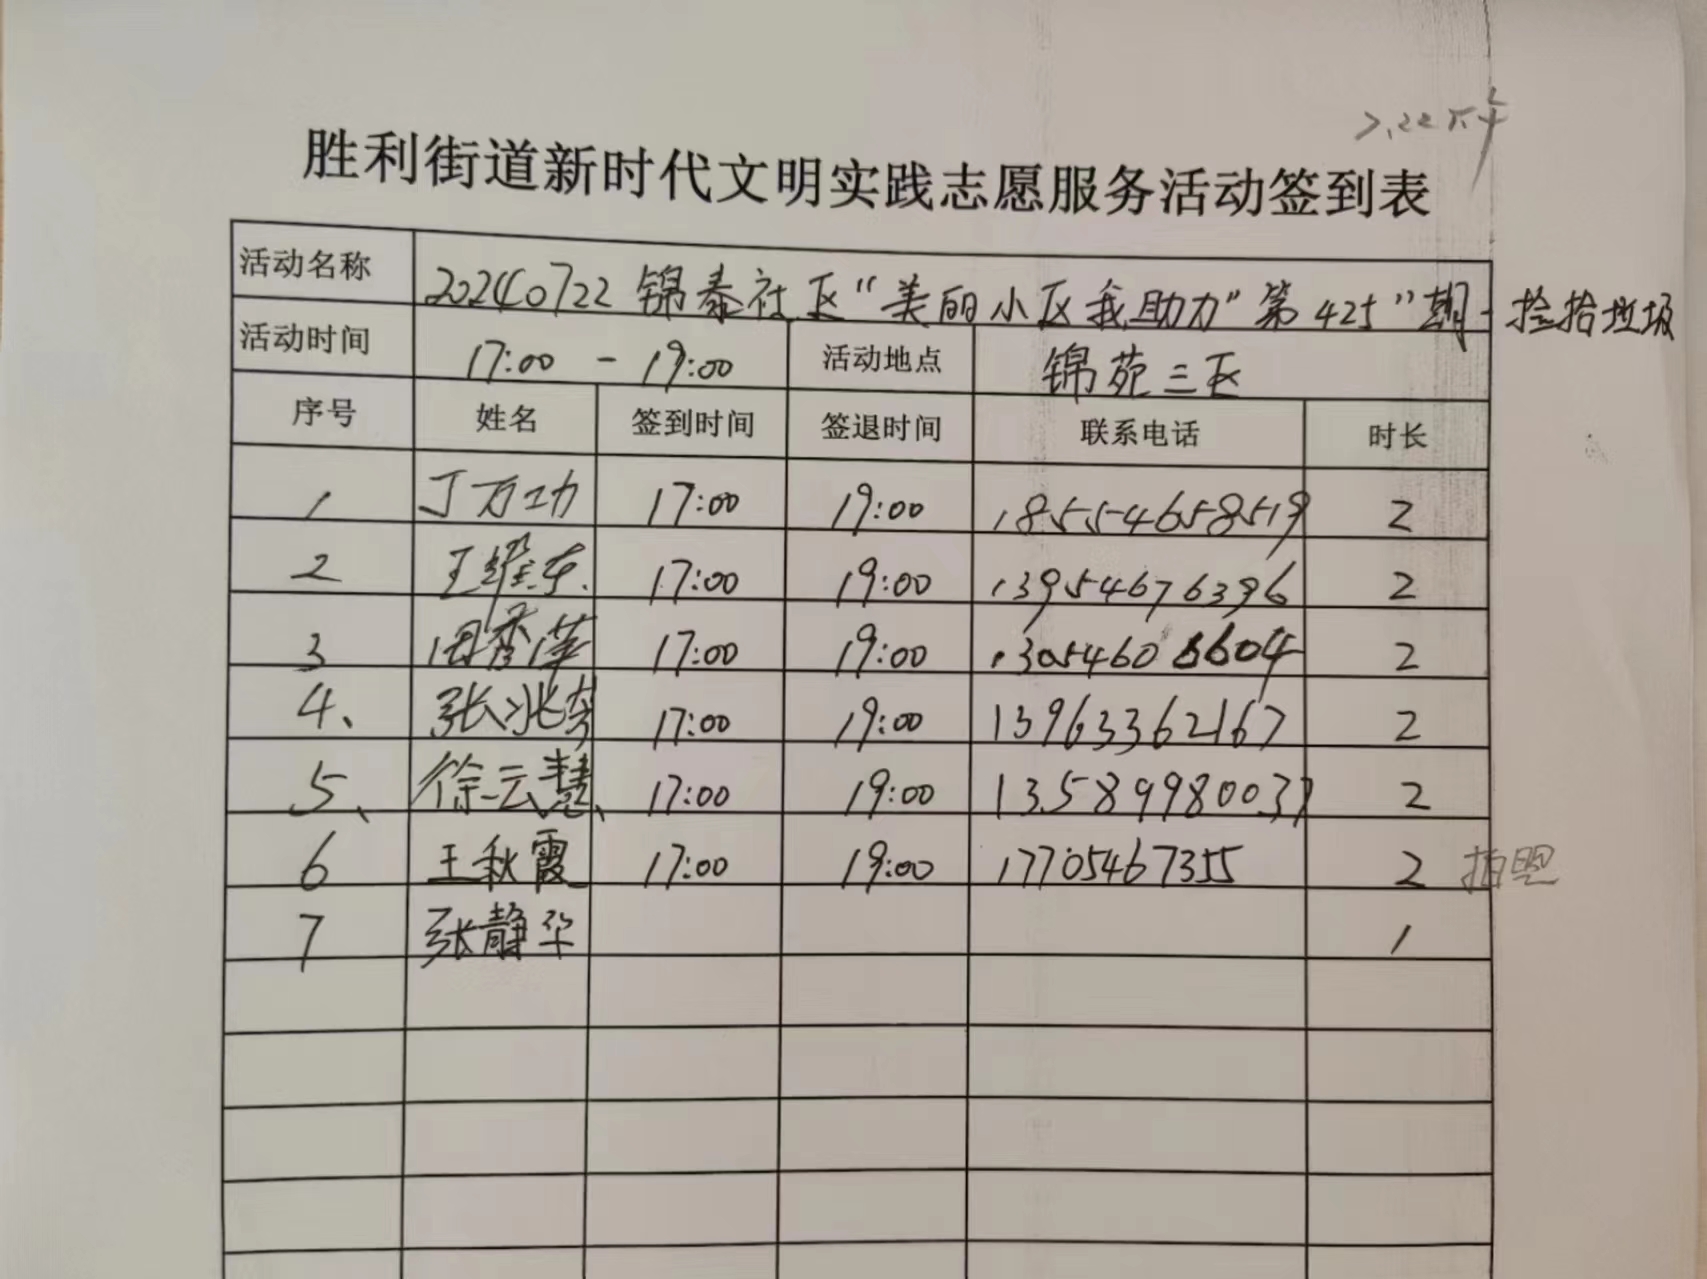 胜利街道新时代文明实践志愿服务活动签到表
活动名称 20240722 锦泰社区“美丽小区我助力”第425”期-捡拾垃圾
活动时间 17:00 - 19:00 活动地点 锦苑三区
序号 姓名 签到时间 签退时间 联系电话 时长
1 丁万功 17:00 19:00 18554658519 2
2 王耀东 17:00 19:00 13954676396 2
3 田秀萍 17:00 19:00 13054606604 2
4、 张兆奇 17:00 19:00 13963362167 2
5、 徐云慧、 17:00 19:00 13589980037 2
6 王秋霞 17:00 19:00 17705467355 2 拍照
7 张静华 1